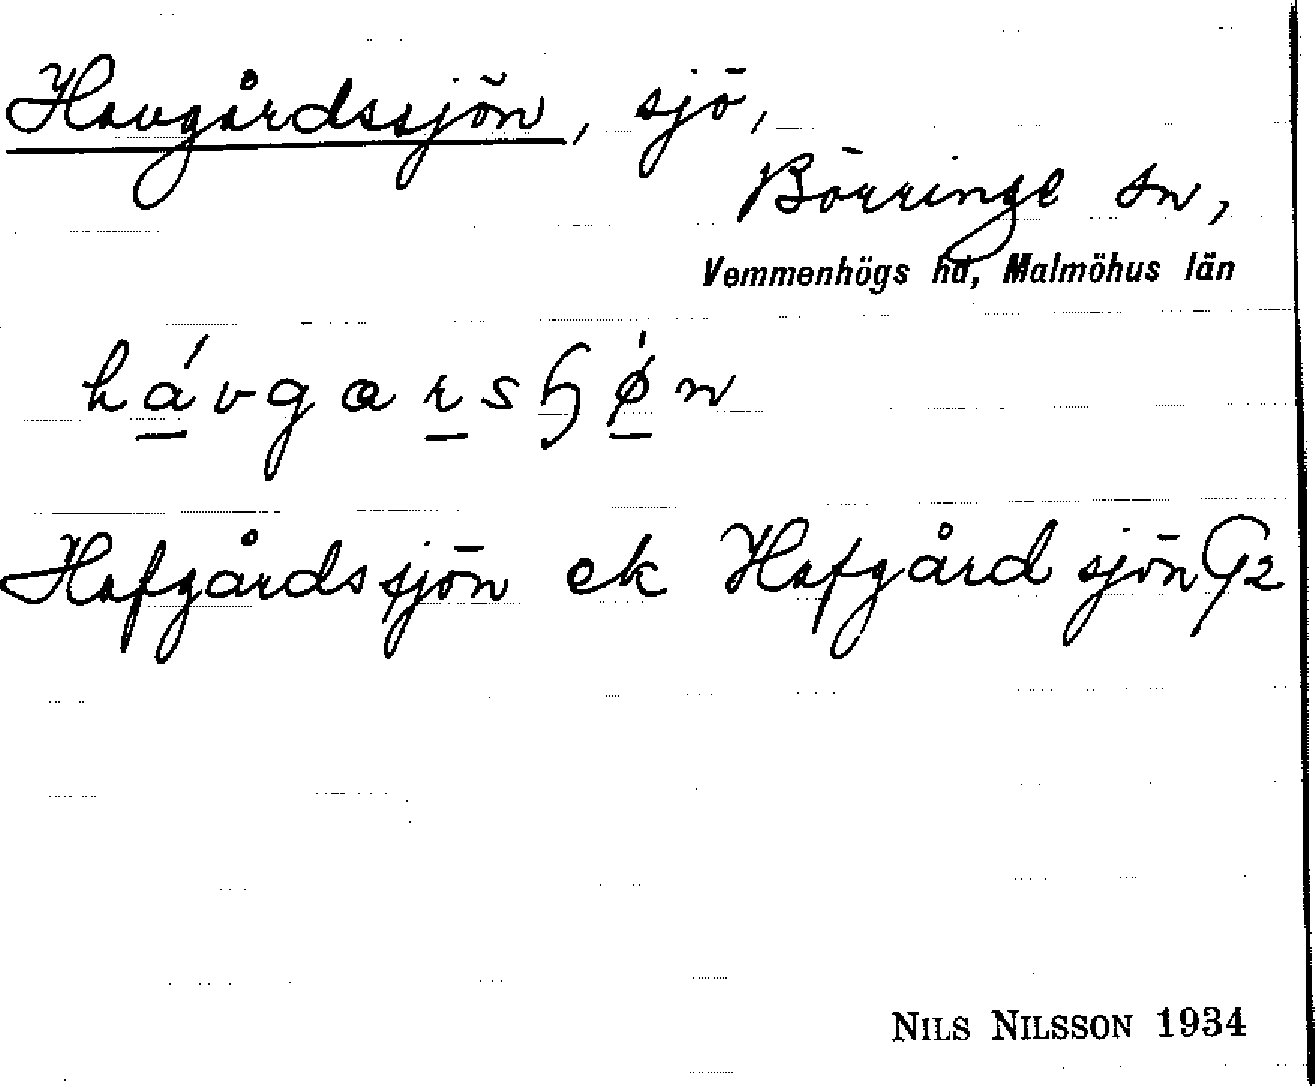 Havgårdssjön, sjö,
Börringe sn,
Vemmenhögs hd, Malmöhus län
Hafgårdssjön ek Hafgård sjön
NILS NILSSON 1934